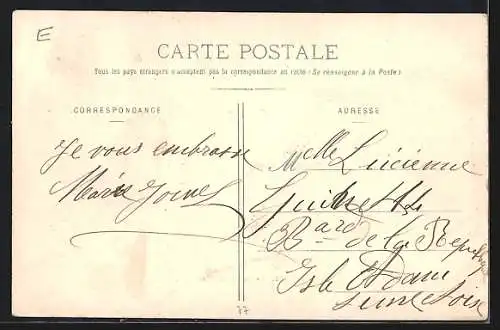 E
CARTE POSTALE
Tous les pays étrangers n'acceptent pas la correspondance au recto (Se renseigner à la Poste)
CORRESPONDANCE
ADRESSE
Je vous embrasse
Marie
Melle Lucienne
Bard de la République
Isle Adam
Seine et Oise
77